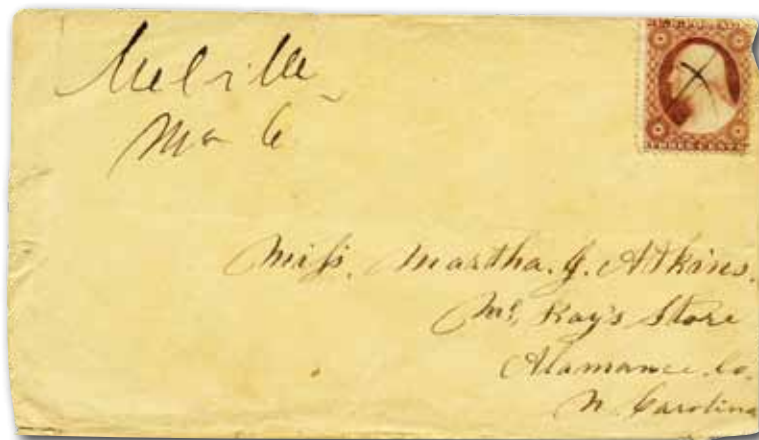 Melville
Mar 6
THREE CENTS
Miss. Martha. J. Atkins.
Mc, Ray's Store
Alamance. Co.
N. Carolina